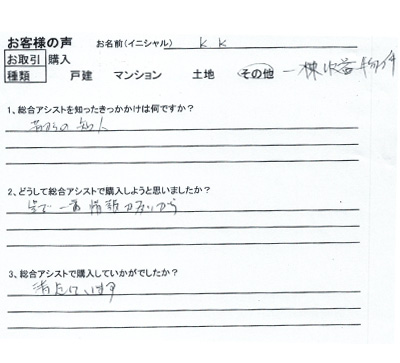 お客様の声 お名前(イニシャル) K K
お取引 購入
種類 戸建 マンション 土地 その他 一棟収益物件
1、総合アシストを知ったきっかけは何ですか？
昔からの知人
2、どうして総合アシストで購入しようと思いましたか？
一番情報が早いから
3、総合アシストで購入していかがでしたか？
満足しています